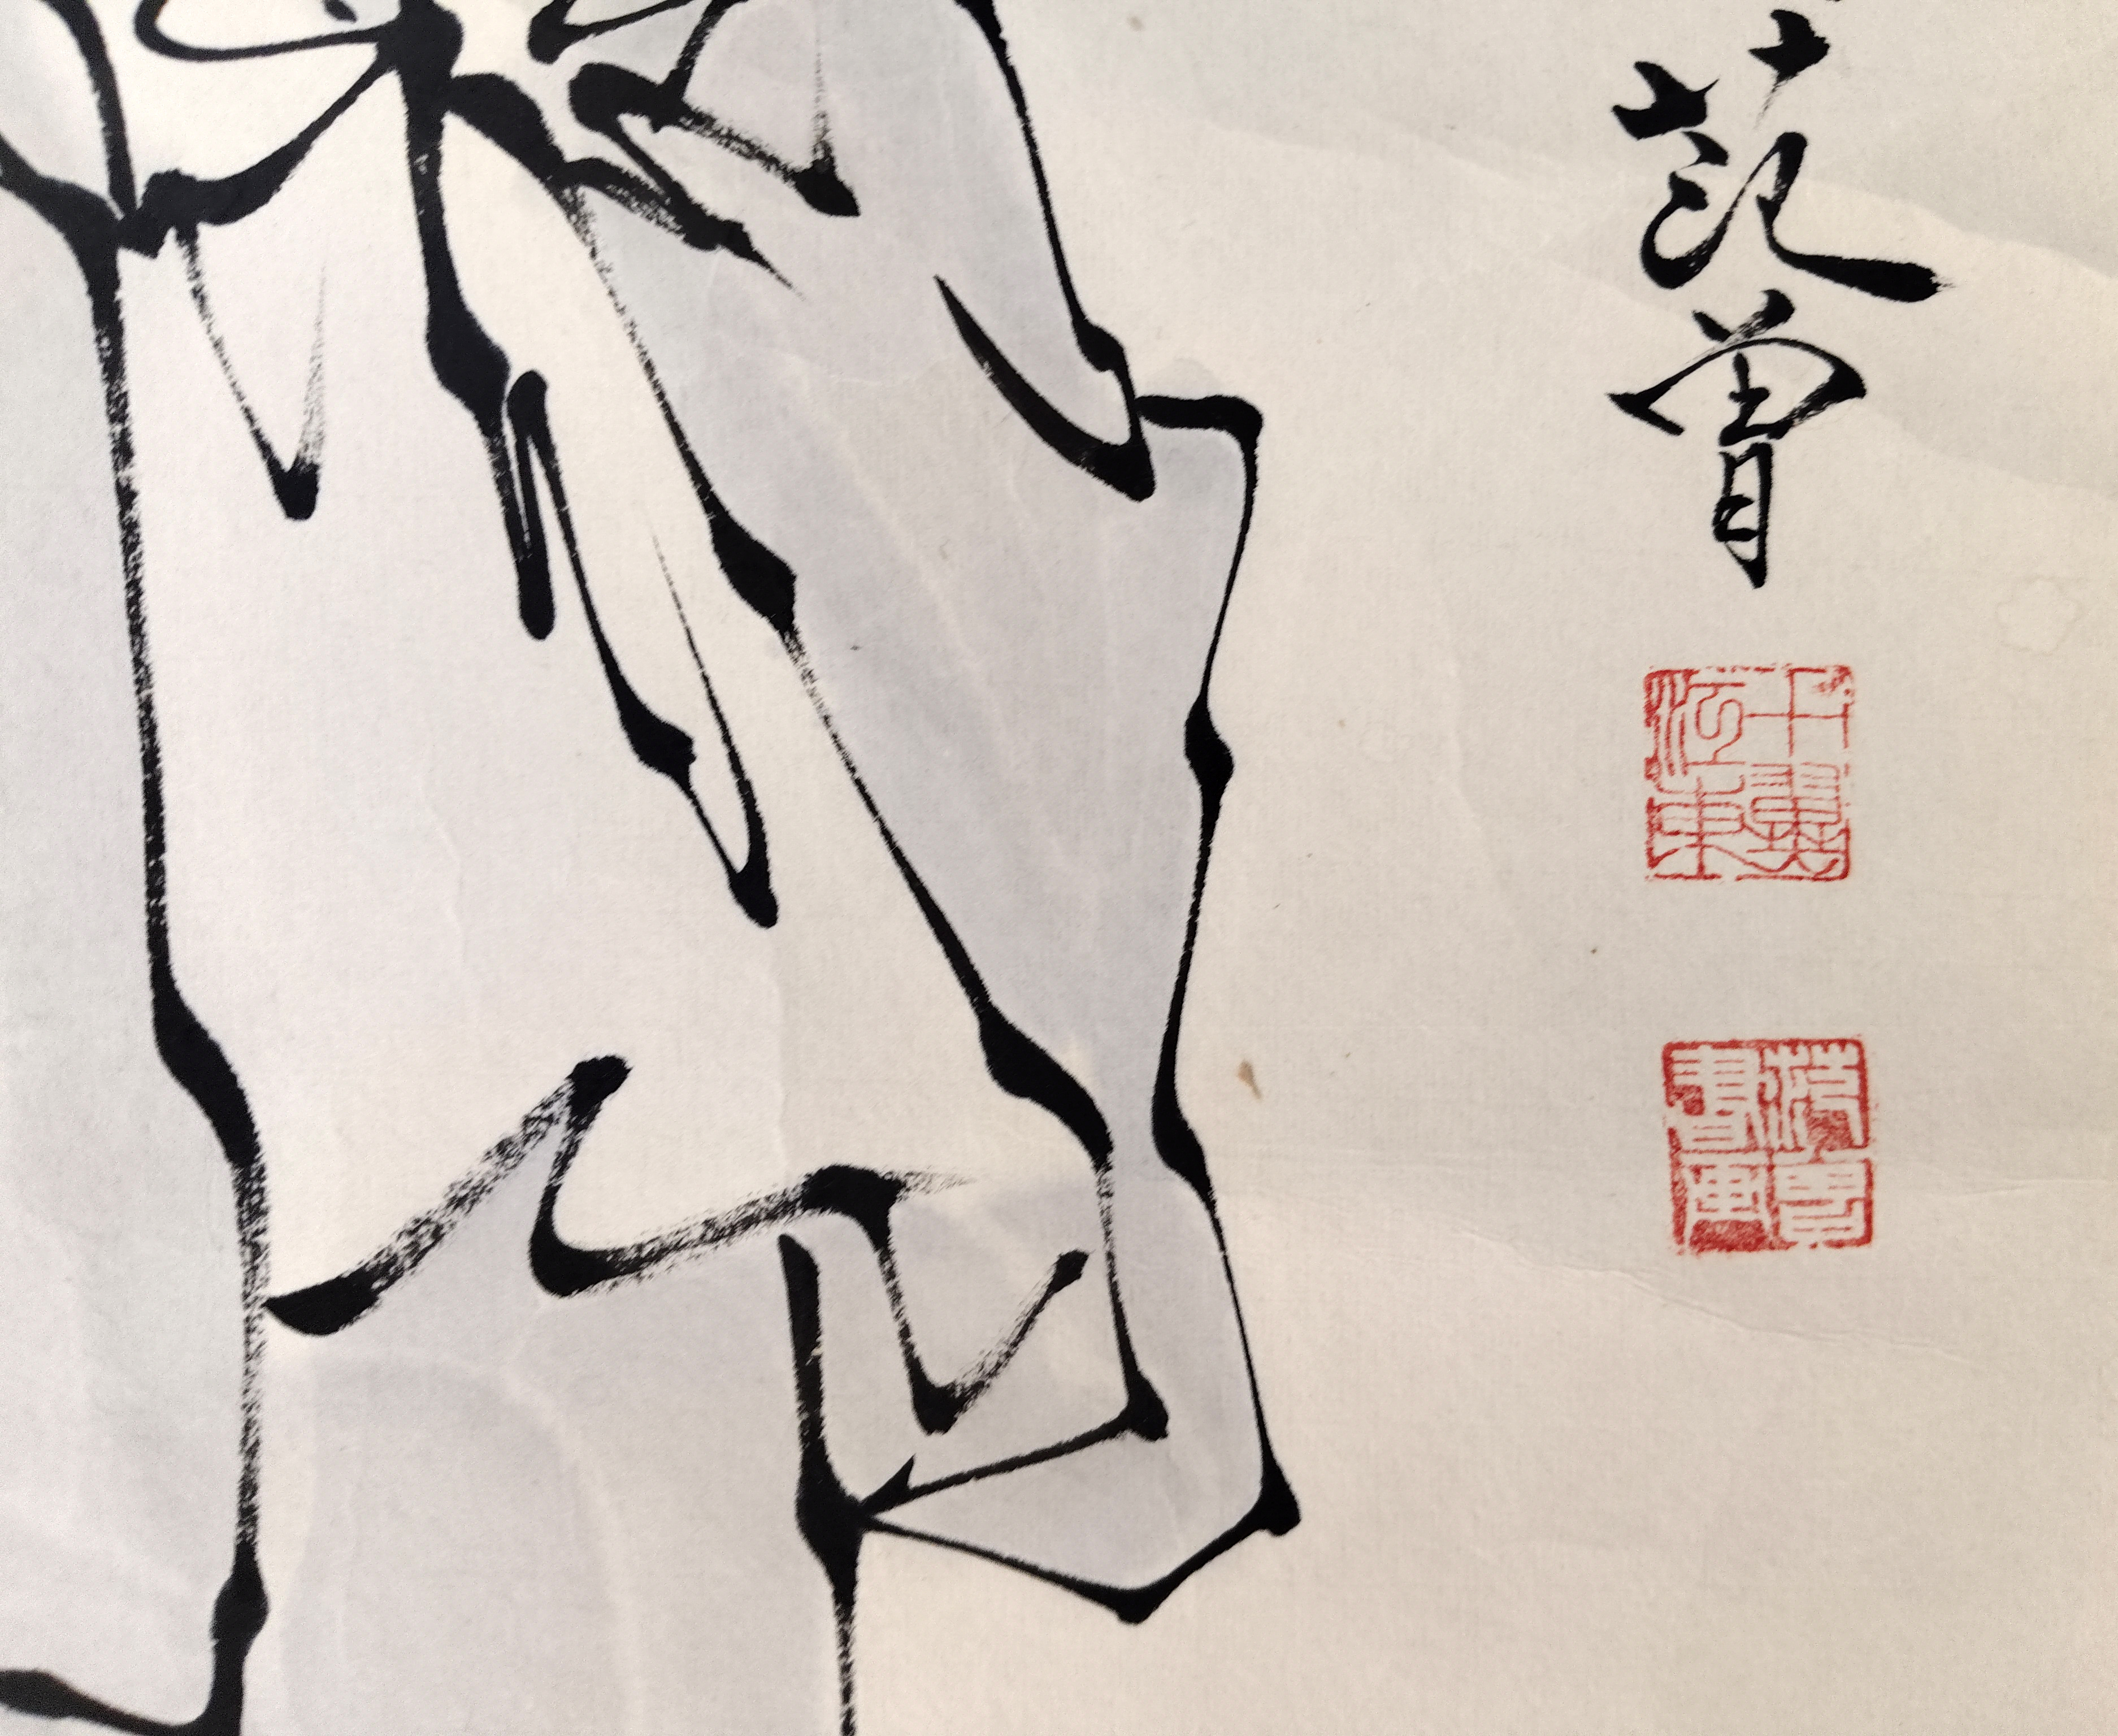 范曾
十翼江東
范曾書畫